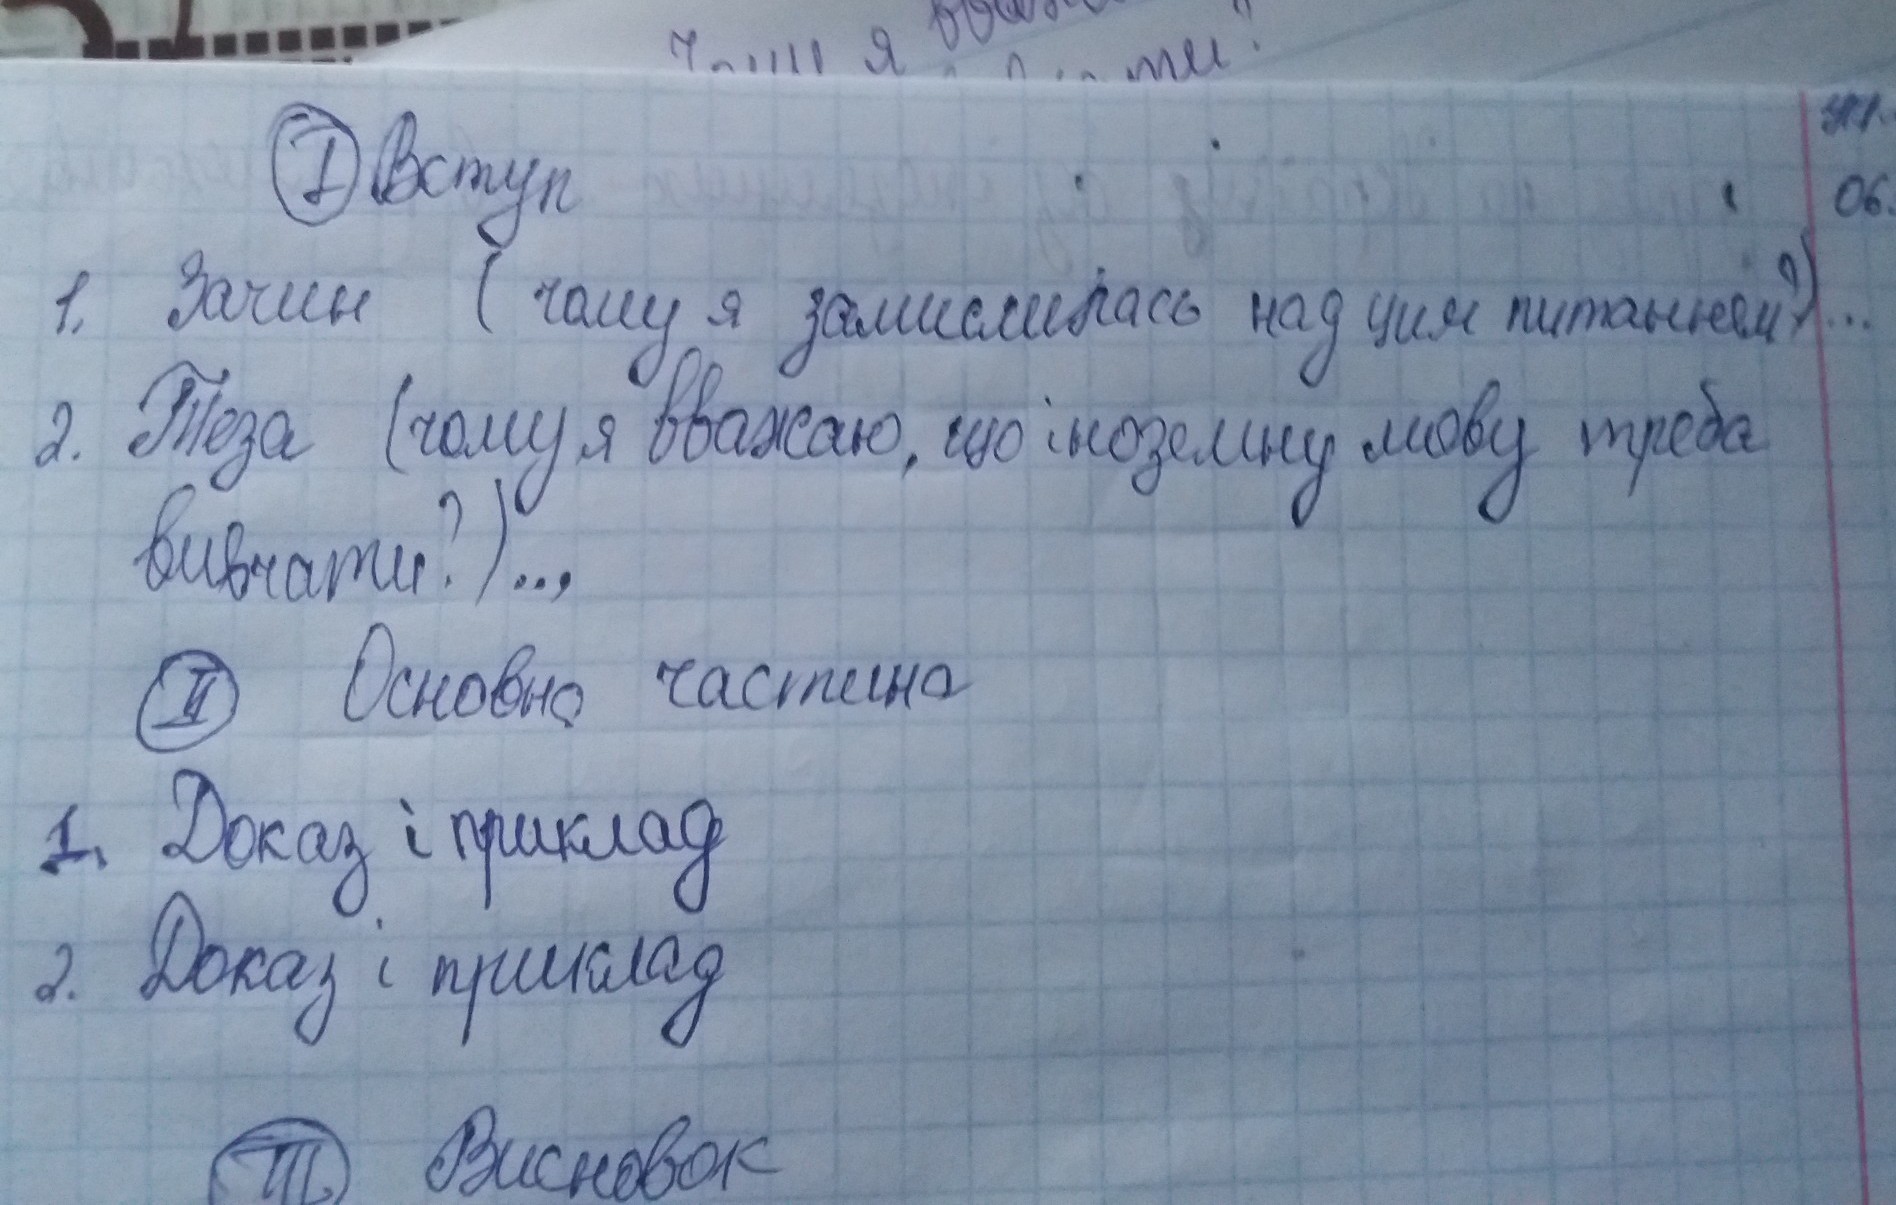 я
I Вступ
06.
1. Зачин (чому я замислилась над цим питанням?)...
2. Теза (чому я вважаю, що іноземну мову треба
вивчати?)...
II Основна частина
1. Доказ і приклад
2. Доказ і приклад
III Висновок